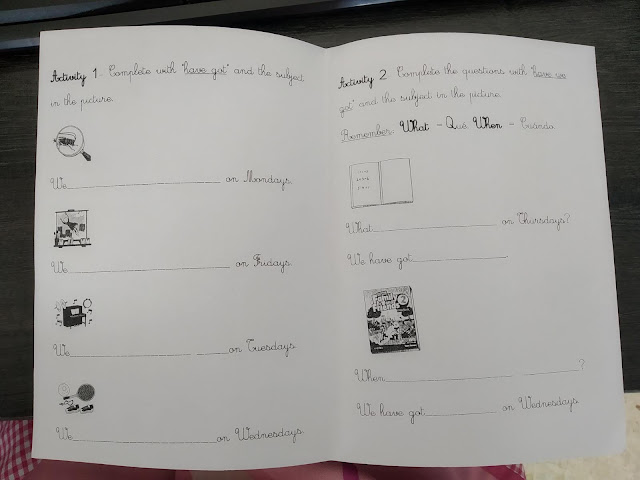 Activity 1. Complete with "have got" and the subject
in the picture.
We______________________ on Mondays.
We______________________ on Fridays.
We_________________ ____on Tuesdays.
We____________________on Wednesdays.
Activity 2. Complete the questions with "have we
got" and the subject in the picture.
Remember: What - Qué. When - Cuándo.
What____________________ on Thursdays?
We have got_______________.
2
When______________________________?
We have got___________ on Wednesdays.